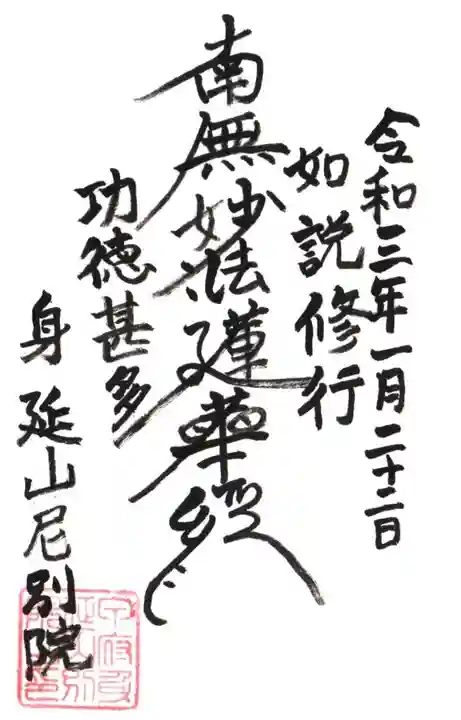 令和三年一月二十二日
如説修行
南無妙法蓮華経
功徳甚多
身延山尼別院